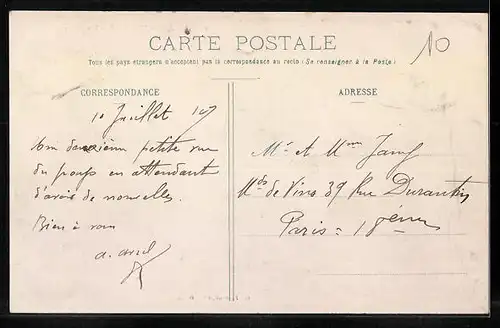 CARTE POSTALE
10
Tous les pays étrangers n'acceptent pas la correspondance au recto (Se renseigner à la Poste)
CORRESPONDANCE
10 Juillet 107
petite vue
du pays en attendant
d'avoir de nouvelles.
Bien à vous
ADRESSE
Mr et Mme
Mds de Vins 39 Rue Durantin
Paris = 18ème